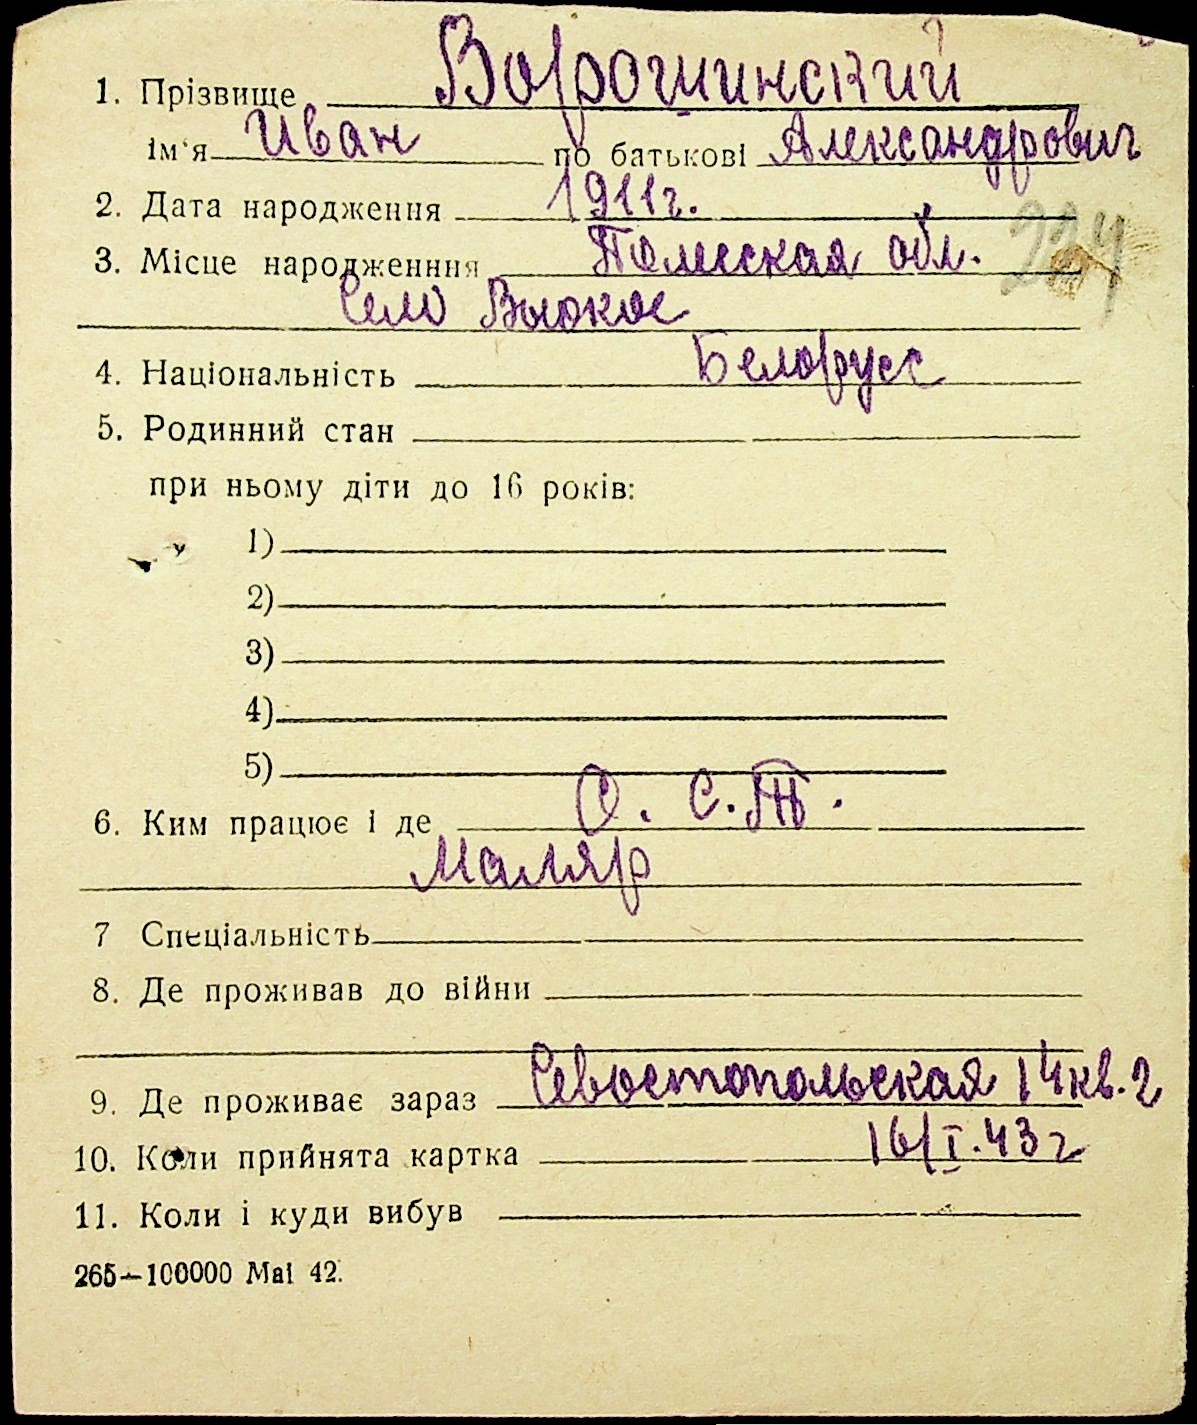 1. Прізвище Ворошинский
ім'я Иван по батькові Александрович
2. Дата народження 1911г.
3. Місце народженння Полесская обл.
224
Село Высокое
4. Національність Белорусс
5. Родинний стан
при ньому діти до 16 років:
1)
2)
3)
4)
5)
6. Ким працює і де О. С. Т.
Маляр
7 Спеціальність
8. Де проживав до війни
9. Де проживає зараз Севостопольская 14 кв. 2
10. Коли прийнята картка 16/I.43 г
11. Коли і куди вибув
265—100000 Mai 42.